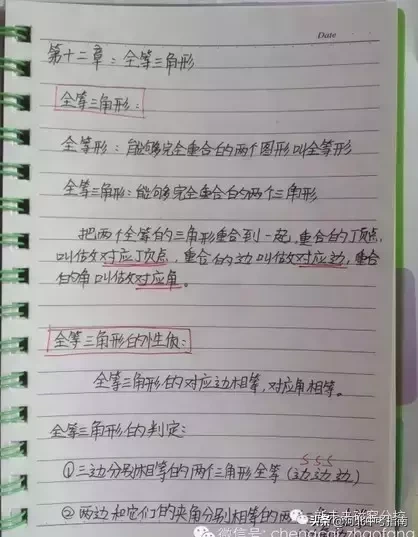 Date
第十二章：全等三角形
全等三角形：
全等形：能够完全重合的两个图形叫全等形
全等三角形：能够完全重合的两个三角形
把两个全等的三角形重合到一起，重合的顶点
叫做对应顶点，重合的边叫做对应边，重合
的角叫做对应角。
全等三角形的性质：
全等三角形的对应边相等，对应角相等。
全等三角形的判定：
SSS
①三边分别相等的两个三角形全等（边边边）
②两边和它们的夹角分别相等的两
头条@河北中考指南
微信号: chengcaizhaofang